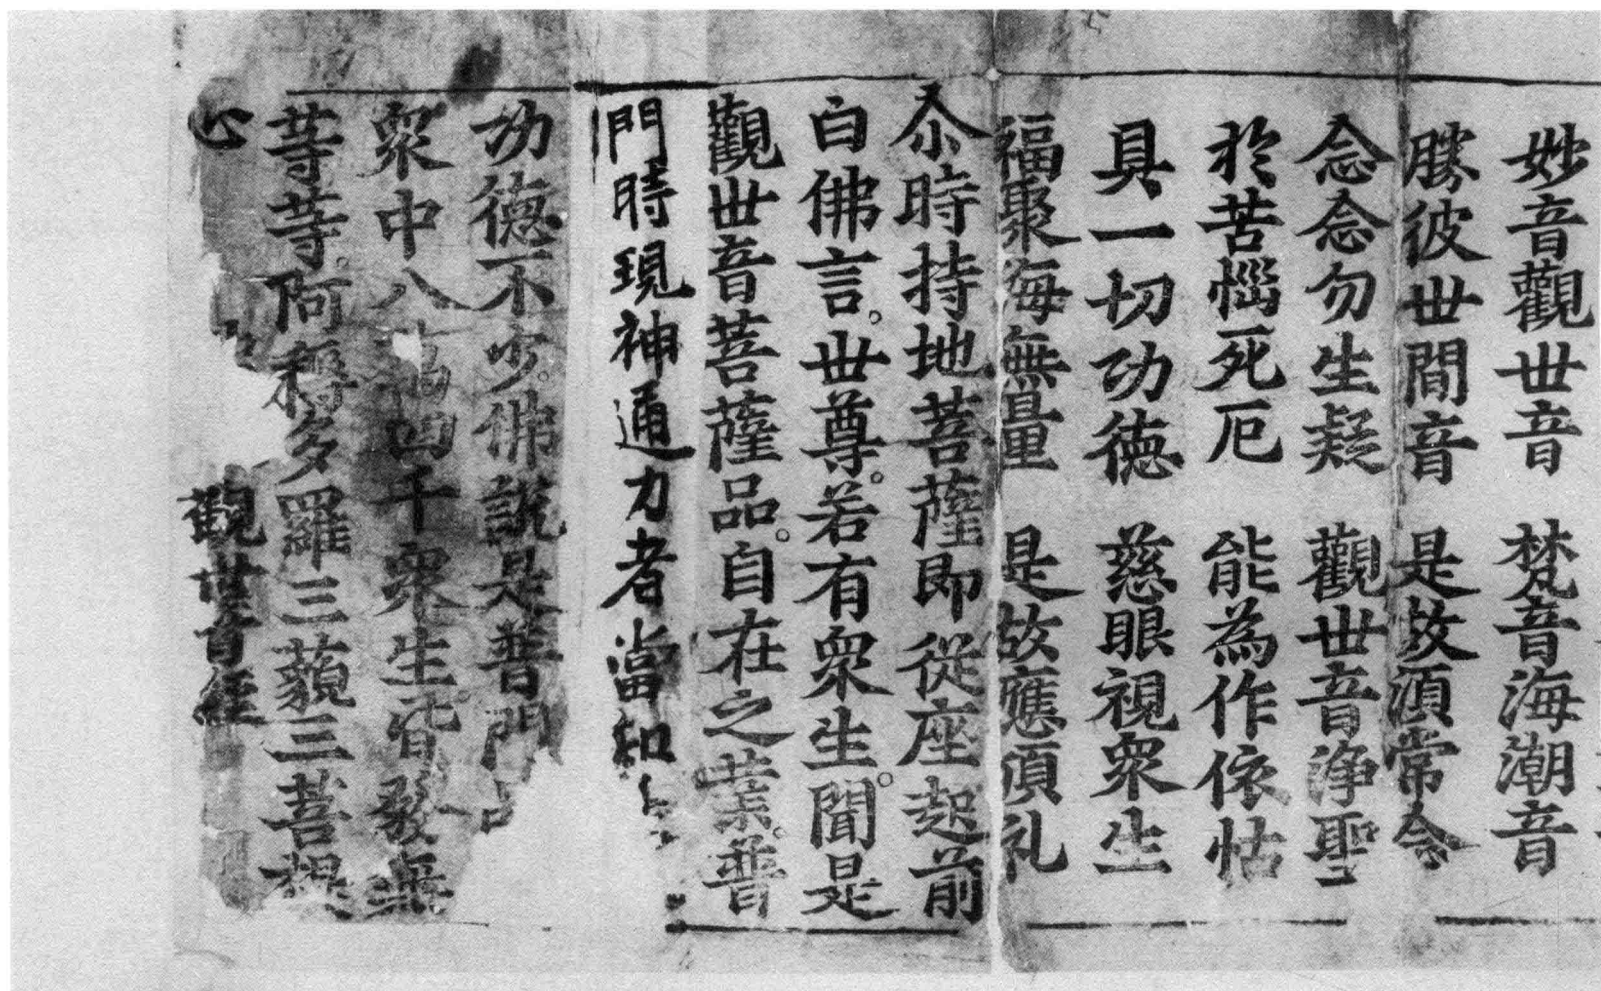 妙音觀世音 梵音海潮音
勝彼世間音 是故湏常念
念念勿生疑 觀世音淨聖
扵苦惱死厄 能為作依怙
具一切功德 慈眼視衆生
福聚海無量 是故應頂礼
尒時持地菩薩即從座起前
白佛言。世尊。若有衆生。聞是
觀世音菩薩品。自在之業。普
門時現神通力者當知
功德不少。佛說是普門
衆中八萬四千衆生皆發無
等等。阿耨多羅三藐三菩提
心
觀世音經